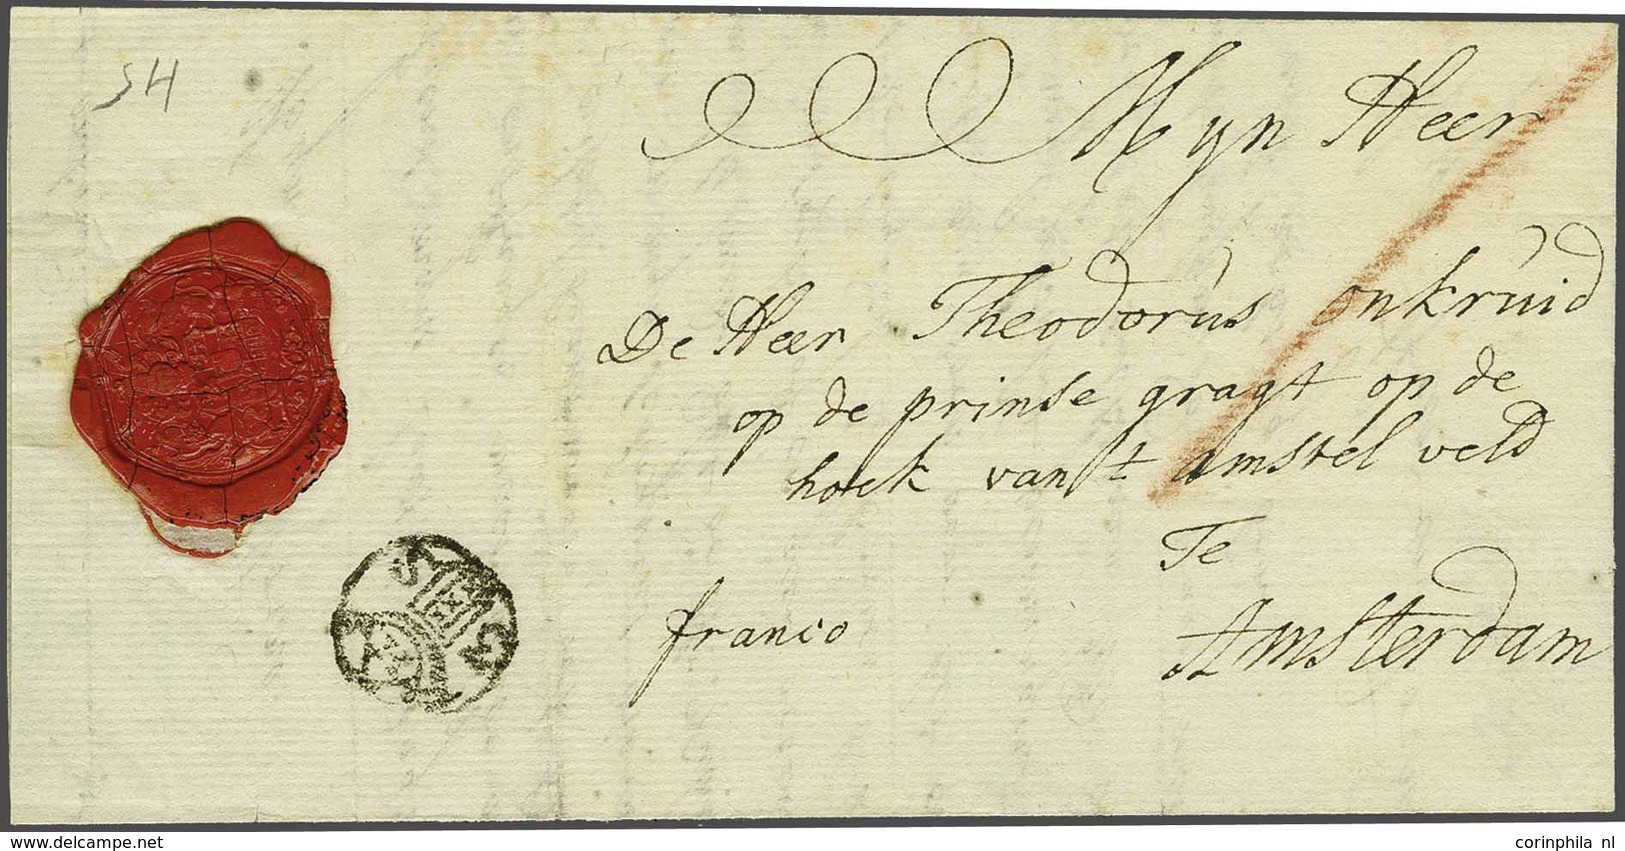 SH
Myn Heer
De Heer Theodorus onkruid
op de prinse gragt op de
hoek van t amstel veld
Te
franco
Amsterdam
S
3
www.delcampe.net
corinphila nl